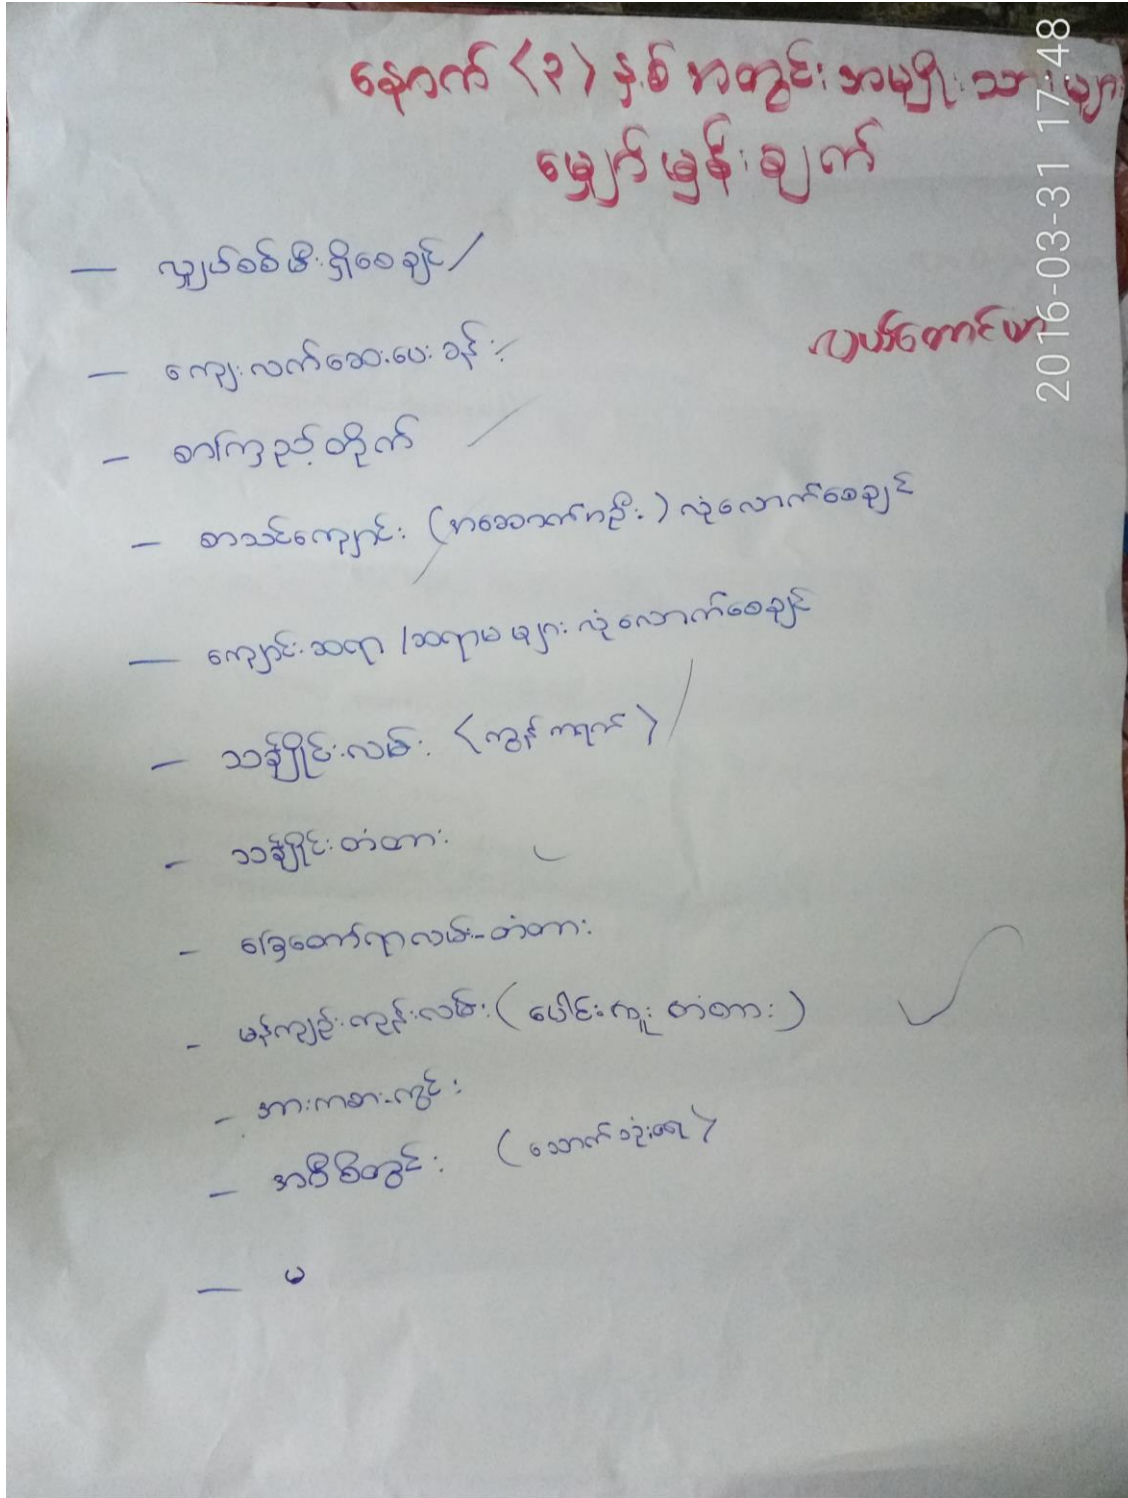 နောက် <၃> နှစ် အတွင်း အမျိုးသားများ
မျှော်မှန်းချက်
2016-03-31 17:48
— လျှပ်စစ်မီးရှိစေချင်
လယ်တောင်ယာ
— ကျေးလက်ဆေးပေးခန်း
— စာကြည့်တိုက်
— စာသင်ကျောင်း (အဆောက်အဦး) လုံလောက်စေချင်
— ကျောင်းဆရာ/ဆရာမများ လုံလောက်စေချင်
— သချႋုင်းလမ်း <ကွန်ကရက်>
— သချႋုင်းတံတား
— ခြေတော်ရာလမ်း-တံတား
— မန်ကျည်းကုန်းလမ်း (ပေါင်းကူး တံတား)
— အားကစားကွင်း
— အဝီစိတွင်း (သောက်သုံးရေ)
— မ